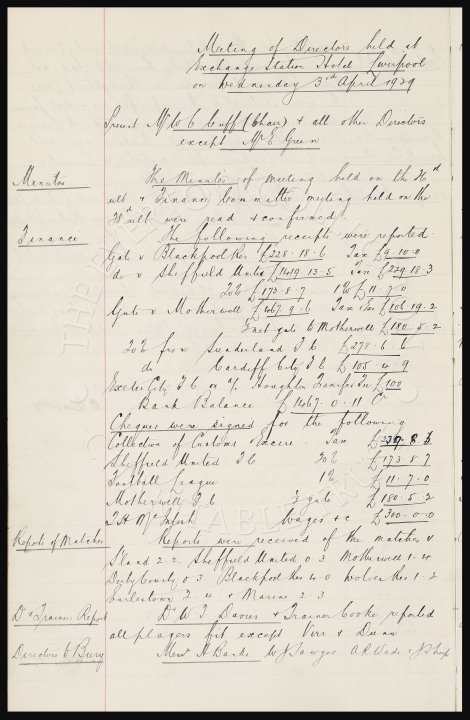 Meeting of Directors held at
Exchange Station Hotel Liverpool
on Wednesday 3rd April 1929
Present Mr W C Cuff (Chair) & all other Directors
except Mr E Green
Minutes
The Minutes of meeting held on the 26th
ult & Finance Committee meeting held on the
ult were read & confirmed
Finance
The following receipts were reported
Gate v Blackpool Res £228.18.6 Tax £9.10.0
do v Sheffield United £1419.13.5 Tax £229.18.3
20% £173.8.7 1% £11.7.0
Gate v Motherwell £467.9.6 Tax £106.19.2
½ net gate to Motherwell £180.5.2
20% from Sunderland F C £278.6.6
do Cardiff City F C £105.4.9
Exeter City F C on a/c Houghton Transfer Fee £100
Bank Balance £1467.0.11 Cr
Cheques were signed for the following
Collection of Customs & Excise Tax £239.8.3
Sheffield United F C 20% £173.8.7
Football League 1% £11.7.0
Motherwell F C ½ gate £180.5.2
T H McIntosh Wages &c £300.0.0
Report of Matches
Reports were received of the matches v
S'land 2-2 Sheffield United 0-3 Motherwell 1-4
Derby County 0-3 Blackpool Res 4-0 Wolves Res 1-2
Earlestown 2-4 & Marine 2-3
Dr & Trainer Report
Dr W J Davies & Trainer Cooke reported
all players fit except Virr & Dunn
Directors to Bury
Messrs A Banks W J Sawyer A R Wade & J Sharp